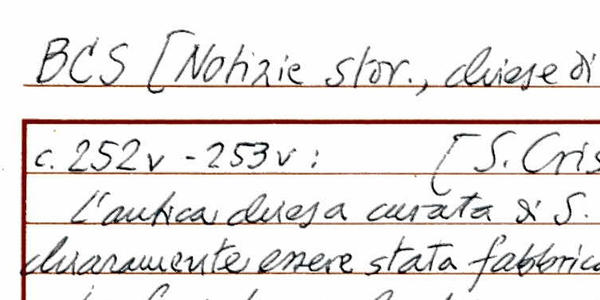 BCS [Notizie stor., chiese di
c. 252v - 253v: [S. Cris
L'antica chiesa curata di S.
chiaramente essere stata fabbric